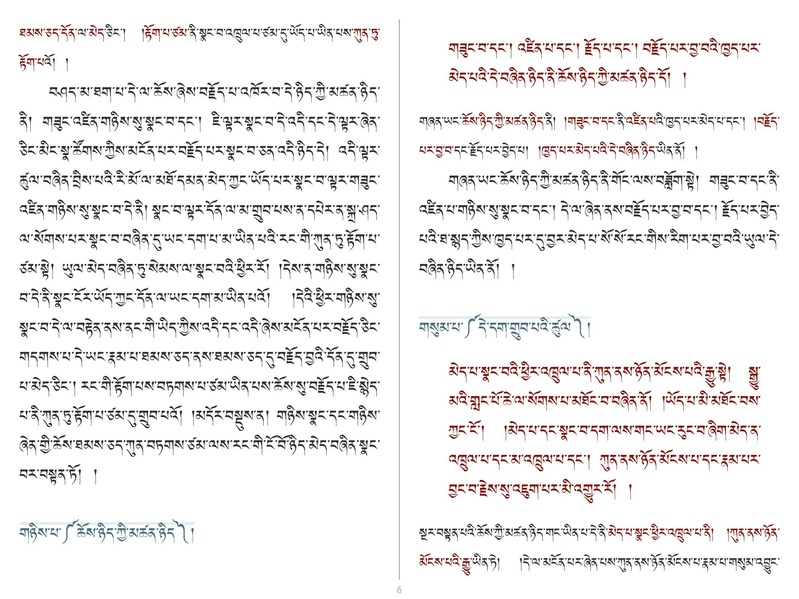 ཐམས་ཅད་དོན་ལ་མེད་ཅིང་། །རྟོག་པ་ཙམ་ནི་སྣང་བ་འཁྲུལ་པ་ཙམ་དུ་ཡོད་པ་ཡིན་པས་ཀུན་ཏུ་
རྟོག་པའོ། །
བཤད་མ་ཐག་པ་དེ་ལ་ཆོས་ཞེས་བརྗོད་པ་འཁོར་བ་དེ་ཉིད་ཀྱི་མཚན་ཉིད་
ནི། གཟུང་འཛིན་གཉིས་སུ་སྣང་བ་དང་། ཇི་ལྟར་སྣང་བ་དེ་འདི་དང་དེ་ལྟར་ཞེན་
ཅིང་མིང་སྣ་ཚོགས་ཀྱིས་མངོན་པར་བརྗོད་པར་སྣང་བ་ཅན་འདི་ཉིད་དེ། འདི་ལྟར་
ཚུལ་བཞིན་བྲིས་པའི་རི་མོ་ལ་མཐོ་དམན་མེད་ཀྱང་ཡོད་པར་སྣང་བ་ལྟར་གཟུང་
འཛིན་གཉིས་སུ་སྣང་བ་དེ་ནི། སྣང་བ་ལྟར་དོན་ལ་མ་གྲུབ་པས་ན་དཔེར་ན་སྐྲ་ཤད་
ལ་སོགས་པར་སྣང་བ་བཞིན་དུ་ཡང་དག་པ་མ་ཡིན་པའི་རང་གི་ཀུན་ཏུ་རྟོག་པ་
ཙམ་སྟེ། ཡུལ་མེད་བཞིན་དུ་སེམས་ལ་སྣང་བའི་ཕྱིར་རོ། །དེས་ན་གཉིས་སུ་སྣང་
བ་དེ་ནི་སྣང་ངོར་ཡོད་ཀྱང་དོན་ལ་ཡང་དག་མ་ཡིན་པའོ། །དེའི་ཕྱིར་གཉིས་སུ་
སྣང་བ་དེ་ལ་བརྟེན་ནས་ནང་གི་ཡིད་ཀྱིས་འདི་དང་འདི་ཞེས་མངོན་པར་བརྗོད་ཅིང་
གདགས་པ་དེ་ཡང་རྣམ་པ་ཐམས་ཅད་ནས་ཐམས་ཅད་དུ་བརྗོད་བྱའི་དོན་དུ་གྲུབ་
པ་མེད་ཅིང་། རང་གི་རྟོག་པས་བཏགས་པ་ཙམ་ཡིན་པས་ཆོས་སུ་བརྗོད་པ་ཇི་སྙེད་
པ་ནི་ཀུན་ཏུ་རྟོག་པ་ཙམ་དུ་གྲུབ་པའོ། །མདོར་བསྡུས་ན། གཉིས་སྣང་དང་གཉིས་
ཞེན་གྱི་ཆོས་ཐམས་ཅད་ཀུན་བཏགས་ཙམ་ལས་རང་གི་ངོ་བོ་ཉིད་མེད་བཞིན་སྣང་
བར་བསྟན་ཏོ། །
གཉིས་པ་༼ ཆོས་ཉིད་ཀྱི་མཚན་ཉིད་༽ །
གཟུང་བ་དང་། འཛིན་པ་དང་། རྗོད་པ་དང་། བརྗོད་པར་བྱ་བའི་ཁྱད་པར་
མེད་པའི་དེ་བཞིན་ཉིད་ནི་ཆོས་ཉིད་ཀྱི་མཚན་ཉིད་དོ། །
གཞན་ཡང་ཆོས་ཉིད་ཀྱི་མཚན་ཉིད་ནི། །གཟུང་བ་དང་ནི་འཛིན་པའི་ཁྱད་པར་མེད་པ་དང་། །བརྗོད་
པར་བྱ་བ་དང་རྗོད་པར་བྱེད་པ། །ཁྱད་པར་མེད་པའི་དེ་བཞིན་ཉིད་ཡིན་ནོ། །
གཞན་ཡང་ཆོས་ཉིད་ཀྱི་མཚན་ཉིད་ནི་གོང་ལས་བཟློག་སྟེ། གཟུང་བ་དང་ནི་
འཛིན་པ་གཉིས་སུ་སྣང་བ་དང་། དེ་ལ་ཞེན་ནས་བརྗོད་པར་བྱ་བ་དང་། རྗོད་པར་བྱེད་
པའི་ཐ་སྙད་ཀྱིས་ཁྱད་པར་དུ་བྱར་མེད་པ་སོ་སོ་རང་གིས་རིག་པར་བྱ་བའི་ཡུལ་དེ་
བཞིན་ཉིད་ཡིན་ནོ། །
གསུམ་པ་༼ དེ་དག་གྲུབ་པའི་ཚུལ་༽ །
མེད་པ་སྣང་བའི་ཕྱིར་འཁྲུལ་པ་ནི་ཀུན་ནས་ཉོན་མོངས་པའི་རྒྱུ་སྟེ། སྒྱུ་
མའི་གླང་པོ་ཆེ་ལ་སོགས་པ་མཐོང་བ་བཞིན་ནོ། །ཡོད་པ་མི་མཐོང་བས་
ཀྱང་ངོ་། །མེད་པ་དང་སྣང་བ་དག་ལས་གང་ཡང་རུང་བ་ཞིག་མེད་ན་
འཁྲུལ་པ་དང་མ་འཁྲུལ་པ་དང་། ཀུན་ནས་ཉོན་མོངས་པ་དང་རྣམ་པར་
བྱང་བ་རྗེས་སུ་འཇུག་པར་མི་འགྱུར་རོ། །
སྔར་བསྟན་པའི་ཆོས་ཀྱི་མཚན་ཉིད་གང་ཡིན་པ་དེ་ནི་མེད་པ་སྣང་ཕྱིར་འཁྲུལ་པ་ནི། །ཀུན་ནས་ཉོན་
མོངས་པའི་རྒྱུ་ཡིན་ཏེ། །དེ་ལ་མངོན་པར་ཞེན་པས་ཀུན་ནས་ཉོན་མོངས་པ་རྣམ་པ་གསུམ་འབྱུང་
6